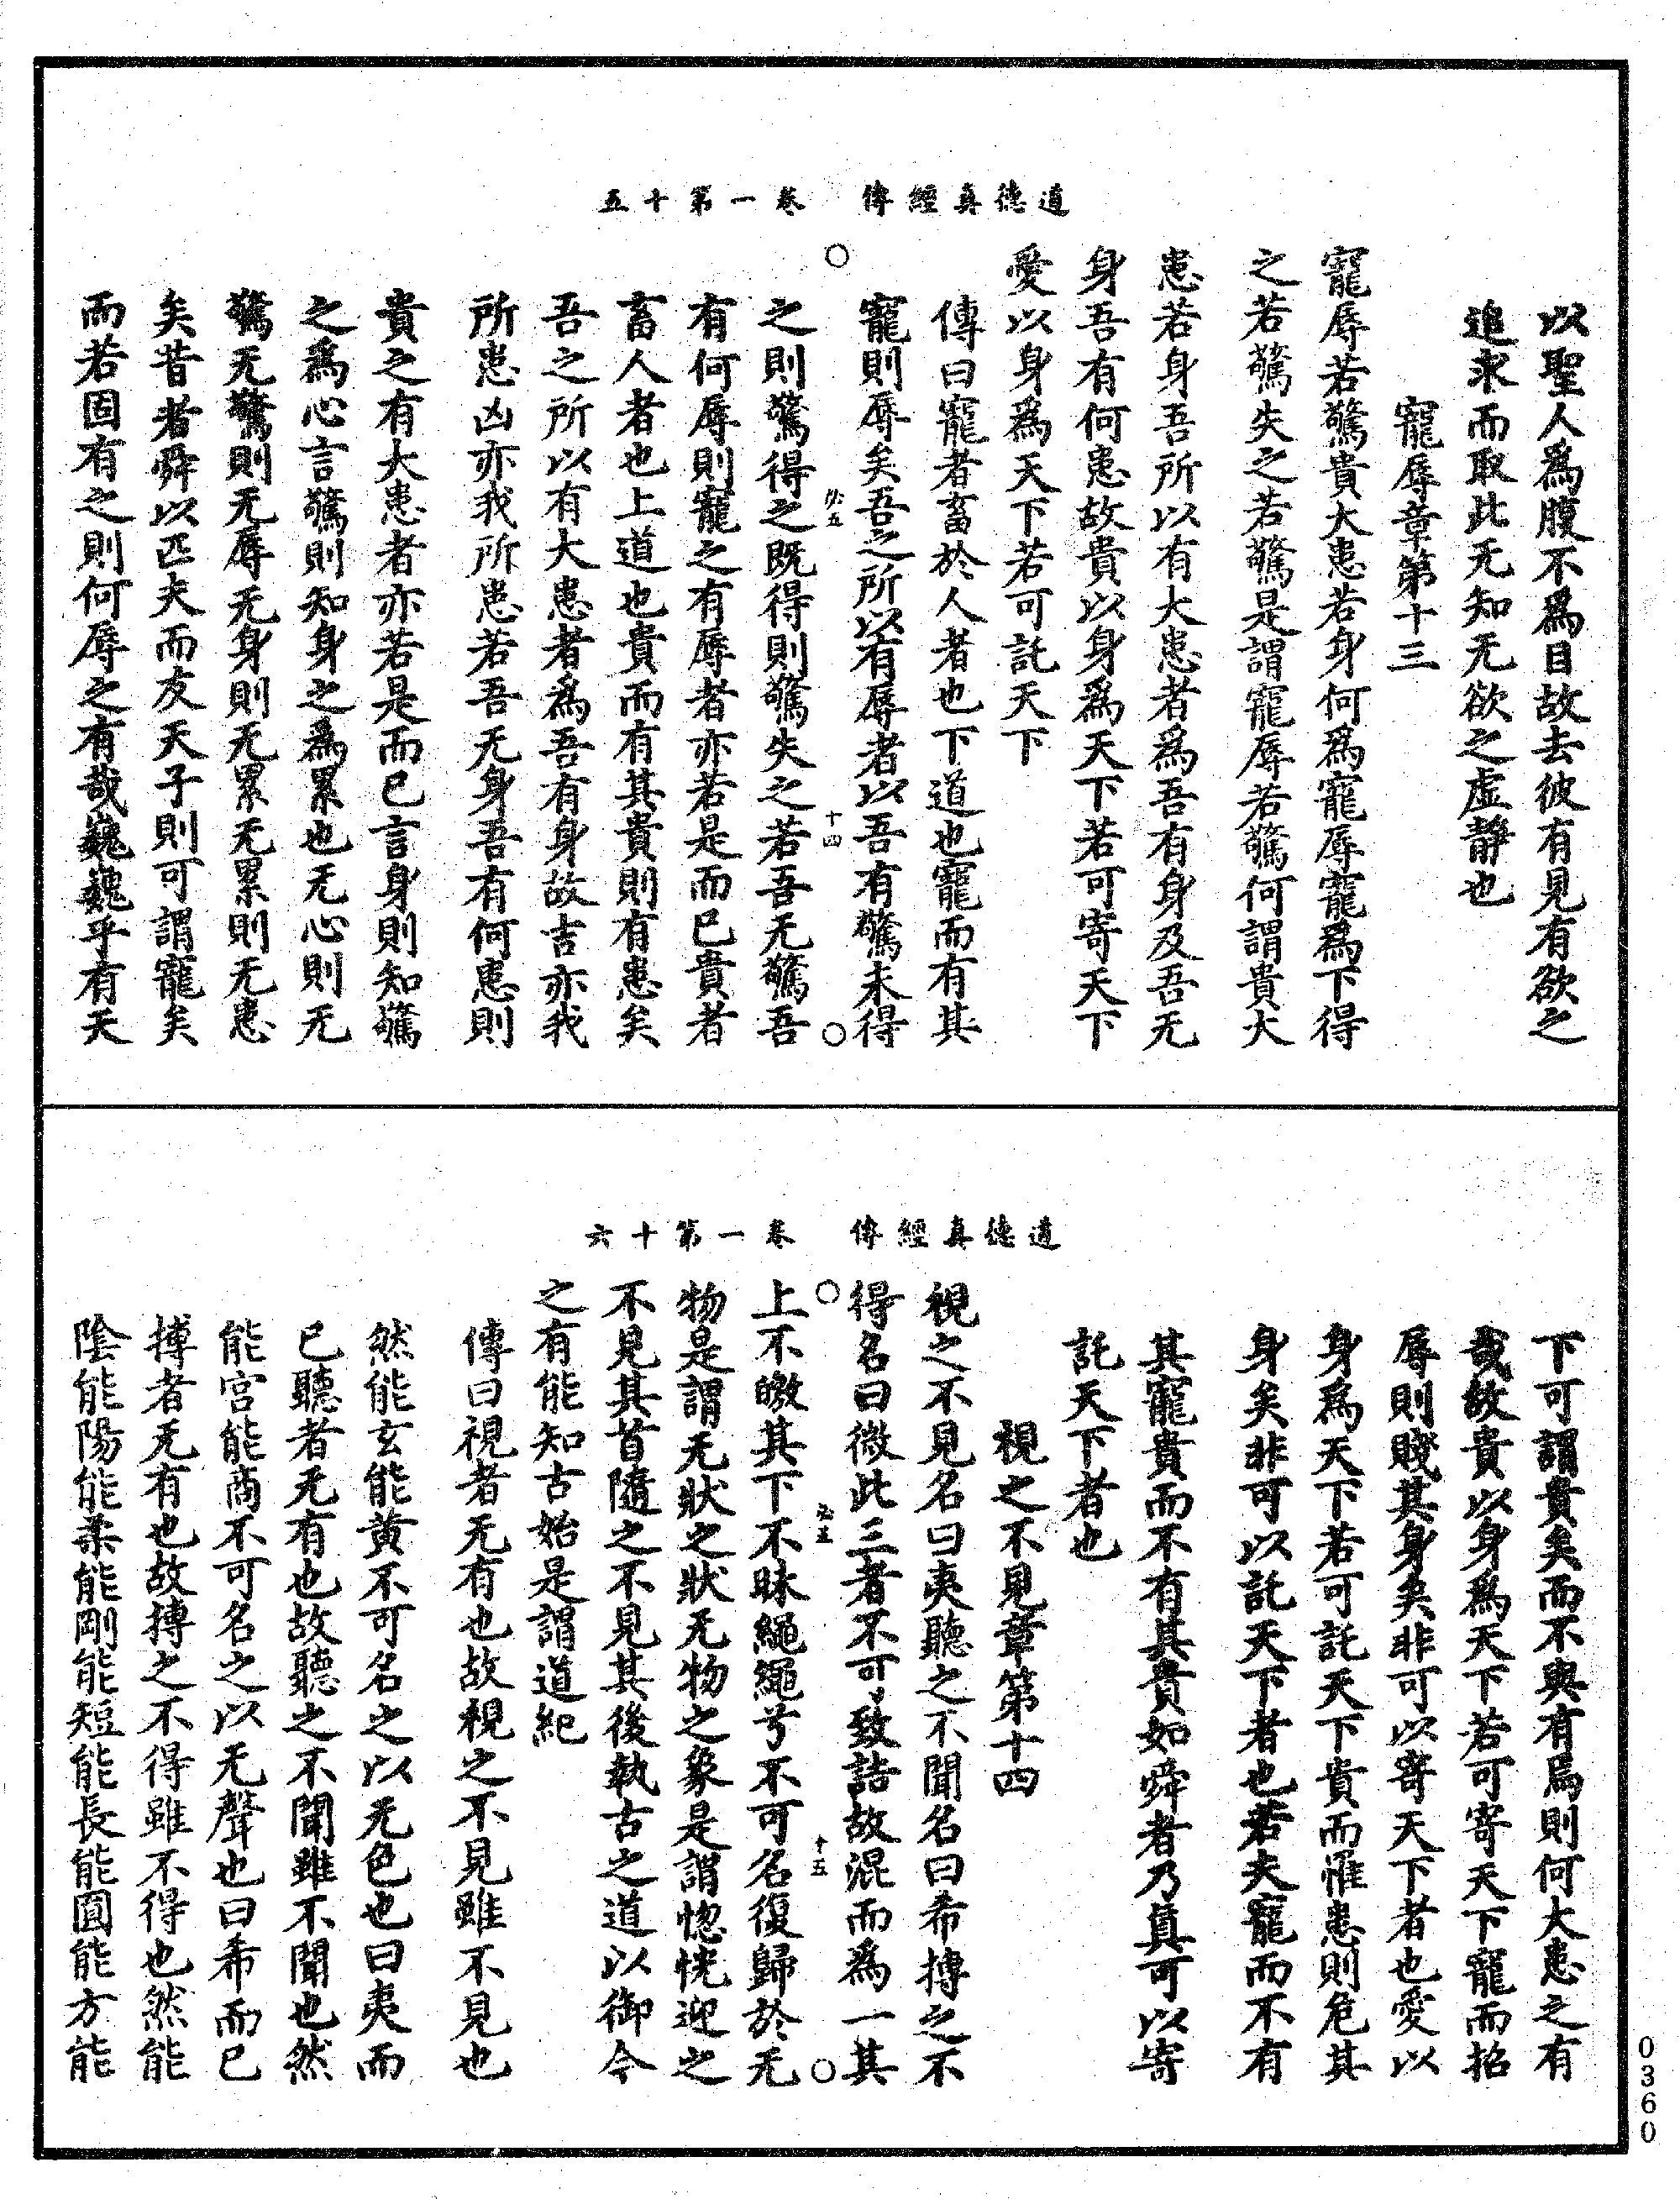 道德真經傳　卷一第十五
以聖人爲腹不爲目故去彼有見有欲之
追求而取此无知无欲之虛靜也
寵辱章第十三
寵辱若驚貴大患若身何爲寵辱寵爲下得
之若驚失之若驚是謂寵辱若驚何謂貴大
患若身吾所以有大患者爲吾有身及吾无
身吾有何患故貴以身爲天下若可寄天下
愛以身爲天下若可託天下
傳曰寵者畜於人者也下道也寵而有其
寵則辱矣吾之所以有辱者以吾有驚未得
必五　十四
之則驚得之既得則驚失之若吾无驚吾
有何辱則寵之有辱者亦若是而已貴者
畜人者也上道也貴而有其貴則有患矣
吾之所以有大患者爲吾有身故吉亦我
所患凶亦我所患若吾无身吾有何患則
貴之有大患者亦若是而已言身則知驚
之爲心言驚則知身之爲累也无心則无
驚无驚則无辱无身則无累无累則无患
矣昔者舜以匹夫而友天子則可謂寵矣
而若固有之則何辱之有哉巍巍乎有天
道德真經傳　卷一第十六
下可謂貴矣而不與有焉則何大患之有
哉故貴以身爲天下若可寄天下寵而招
辱則賤其身矣非可以寄天下者也愛以
身爲天下若可託天下貴而罹患則危其
身矣非可以託天下者也若夫寵而不有
其寵貴而不有其貴如舜者乃眞可以寄
託天下者也
視之不見章第十四
視之不見名曰夷聽之不聞名曰希摶之不
得名曰微此三者不可致詰故混而爲一其
必五　十五
上不皦其下不昧繩繩兮不可名復歸於无
物是謂无狀之狀无物之象是謂惚恍迎之
不見其首隨之不見其後執古之道以御今
之有能知古始是謂道紀
傳曰視者无有也故視之不見雖不見也
然能玄能黃不可名之以无色也曰夷而
已聽者无有也故聽之不聞雖不聞也然
能宮能商不可名之以无聲也曰希而已
摶者无有也故摶之不得雖不得也然能
陰能陽能柔能剛能短能長能圓能方能
0360